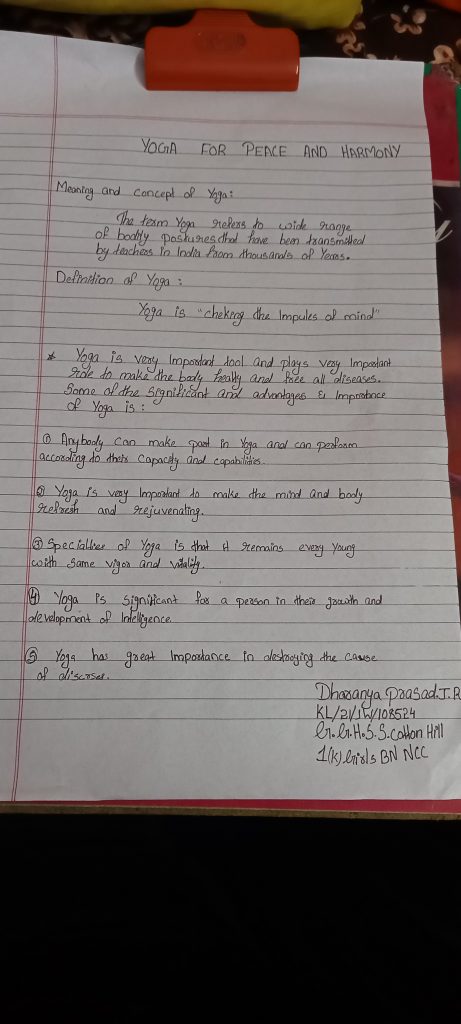 YOGA FOR PEACE AND HARMONY
Meaning and concept of Yoga:
The term Yoga refers to wide range
of bodily postures that have been transmitted
by teachers in India from thousands of Years.
Definition of Yoga :
Yoga is "cheking the Impules of mind"
* Yoga is very Important tool and plays very Important
role to make the body healty and free all diseases.
Some of the significant and advantages & Improtance
of Yoga is :
① Anybody can make part in Yoga and can perform
according to their capacity and capabilities.
② Yoga is very Important to make the mind and body
refresh and rejuvenating.
③ Specialties of Yoga is that it remains every young
with same vigor and vitality.
④ Yoga is significant for a person in their growth and
development of Intelligence
⑤ Yoga has great Importance in destroying the cause
of
Dharanya Prasad.J.R
KL/21/JW/108524
G.G.H.S.S.cotton Hill
1(K).Girls BN NCC